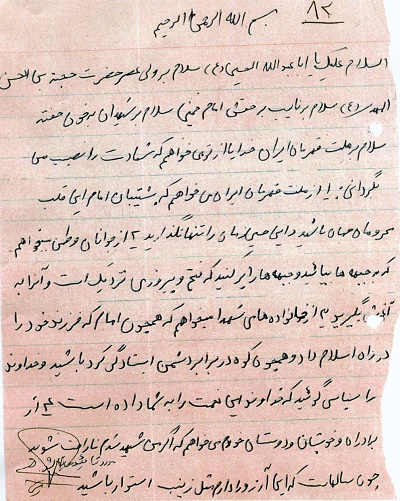 ۸۲
بسم الله الرحمن الرحیم
السلام علیک یا ابا عبدالله الحسین (ع) سلام بر ولی عصر حضرت حجة بن الحسن
المهدی (ع) سلام بر نایب بر حقش امام خمینی سلام بر شهیدان به خون خفته
سلام بر ملت قهرمان ایران خدایا از تو می خواهم که شهادت را نصیب من
بگردانی ۱- از ملت قهرمان ایران می خواهم که پشتیبان امام این قلب
محرومان جهان باشید و این حسین زمان را تنها نگذارید ۲- از جوانان وطن میخواهم
که به جبهه ها بیائید و جبهه ها را پر کنید که فتح و پیروزی نزدیک است و آنرا به
آغوش بگیرید ۳- از خانواده های شهدا میخواهم که همچون امام که فرزند خود را
در راه اسلام داد و همچون کوه در برابر دشمن ایستادگی کرد باشید و خداوند
را سپاس گوئید که خداوند این نعمت را به شما داده است ۴- از
برادران و خویشان و دوستان خودم می خواهم که اگر من شهید شدم ناراحت نشوید
چون سالهاست که این آرزو را دارم مثل زینب استوار باشید